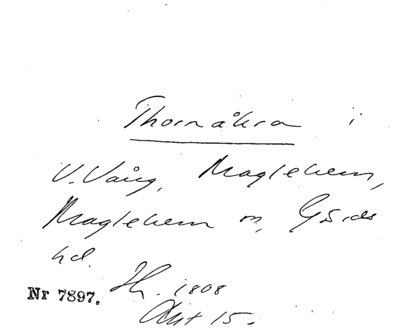 Thornåkra i
V. Vång, Maglehem,
Maglehem sn, Gärds
hd.
Nr 7897. Sh. 1808
Akt 15.